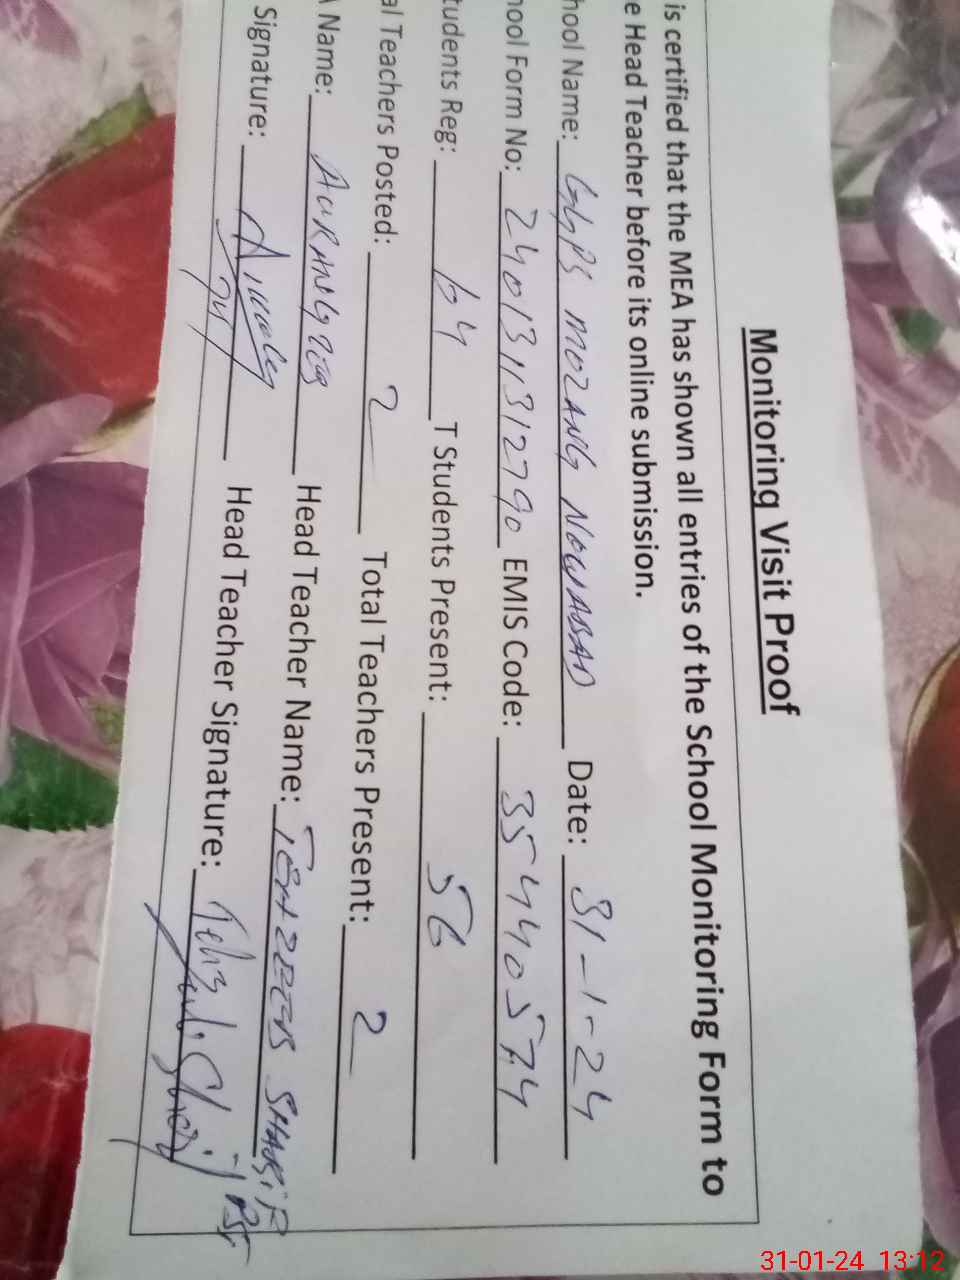 Monitoring Visit Proof
is certified that the MEA has shown all entries of the School Monitoring Form to
e Head Teacher before its online submission.
hool Name: GGPS MOZANG NOWABAD Date: 31-1-24
hool Form No: 2401311312790 EMIS Code: 35440574
tudents Reg: 64 T Students Present: 56
al Teachers Posted: 2 Total Teachers Present: 2
A Name: AURANGZEB Head Teacher Name: SHARIF
Signature: Head Teacher Signature: PST
31-01-24 13:12